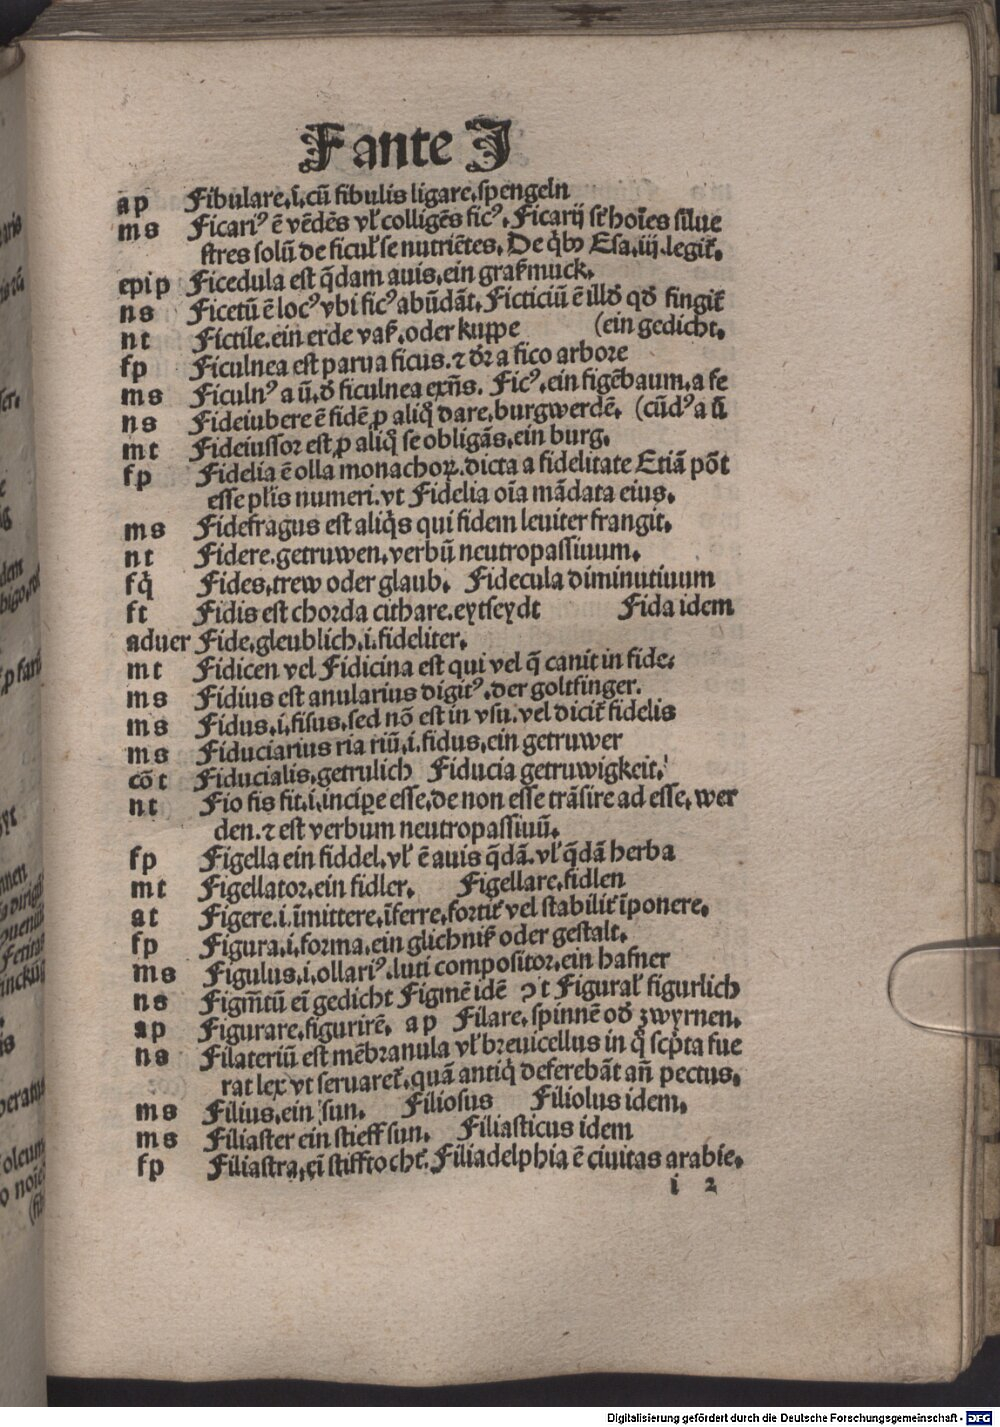 F ante J
a p Fibulare.i.cū fibulis ligare.spengeln
m s Ficariꝰ ē vēdēs vl̕ colligēs ficꝰ. Ficarij sūt hoīes silue
stres solū de ficul̕ se nutriētes. De q̇bꝫ Esa.iij.legit̕.
epi p Ficedula est q̄dam auis.ein graßmuck.
n s Ficetū ē locꝰ vbi ficꝰ abūdāt. Ficticiū ē illđ qđ fingit̕
n t Fictile.ein erde vaß.oder kuppe (ein gedicht.
f p Ficulnea est parua ficus.⁊ đr a fico arbore
m s Ficulnꝰ a ū.đ ficulnea exn̄s. Ficꝰ.ein figēbaum.a fe
n s Fideiubere ē fidē ꝓ aliq̊ dare.burgwerdē. (cūdꝰ a ū
m t Fideiussor est ꝓ aliq̊ se obligās.ein burg.
f p Fidelia ē olla monachoꝝ.dicta a fidelitate Etiā pōt
esse pl̄is numeri.vt Fidelia oīa mādata eius.
m s Fidefragus est aliq̇s qui fidem leuiter frangit.
n t Fidere.getruwen.verbū neutropassiuum.
f q̇ Fides.trew oder glaub. Fidecula diminutiuum
f t Fidis est chorda cithare.eytseydt Fida idem
aduer Fide.gleublich.i.fideliter.
m t Fidicen vel Fidicina est qui vel q̄ canit in fide.
m s Fidius est anularius digitꝰ.der goltfinger.
m s Fidus.i.fisus.sed nō est in vsu.vel dicit̕ fidelis
m s Fiduciarius ria riū.i.fidus.ein getruwer
cō t Fiducialis.getrulich Fiducia getruwigkeit.
n t Fio fis fit.i.incipe esse.de non esse trāsire ad esse.wer
den.⁊ est verbum neutropassiuū.
f p Figella ein fiddel.vl̕ ē auis q̄dā.vl̕ q̄dā herba
m t Figellator.ein fidler. Figellare.fidlen
a t Figere.i.īmittere.īferre.fortit̕ vel stabilit̕ īponere.
f p Figura.i.forma.ein glichniß oder gestalt.
m s Figulus.i.ollariꝰ.luti compositor.ein hafner
n s Figm̄tū eī gedicht Figmē idē ꝯ t Figural̕ figurlich
a p Figurare.figurirē. a p Filare.spinnē ođ zwyrnen.
n s Filateriū est mēbranula vl̕ breuicellus in q̊ scp̄ta fue
rat lex vt seruaret̕.quā antiq̇ deferebāt an̄ pectus.
m s Filius.ein sun. Filiosus Filiolus idem.
m s Filiaster ein stieff sun. Filiasticus idem
f p Filiastra.eī stifftocht̕. Filiadelphia ē ciuitas arabie.
i 2
Digitalisierung gefördert durch die Deutsche Forschungsgemeinschaft - DFG